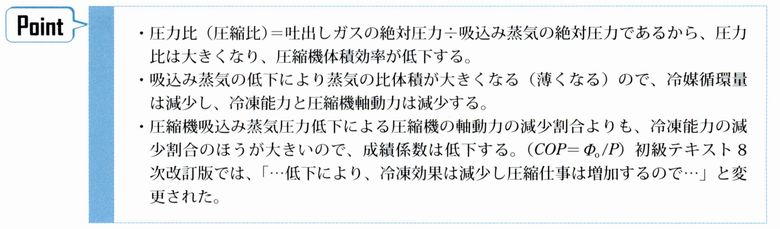 Point
・圧力比（圧縮比）＝吐出しガスの絶対圧力÷吸込み蒸気の絶対圧力であるから、圧力
比は大きくなり、圧縮機体積効率が低下する。
・吸込み蒸気の低下により蒸気の比体積が大きくなる（薄くなる）ので、冷媒循環量
は減少し、冷凍能力と圧縮機軸動力は減少する。
・圧縮機吸込み蒸気圧力低下による圧縮機の軸動力の減少割合よりも、冷凍能力の減
少割合のほうが大きいので、成績係数は低下する。（COP＝Φ₀/P）初級テキスト８
次改訂版では、「…低下により、冷凍効果は減少し圧縮仕事は増加するので…」と変
更された。